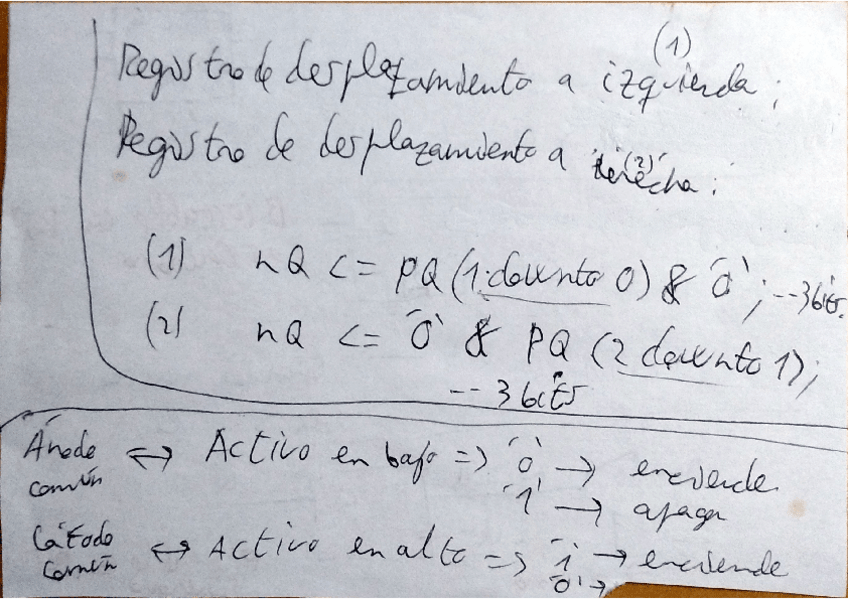 Registro de desplazamiento a izquierda; (1)
Registro de desplazamiento a derecha; (2)
(1) nQ <= pQ (1 downto 0) & '0'; --3bits.
(2) nQ <= '0' & pQ (2 downto 1);
-- 3 bits
Ánodo común <-> Activo en bajo => '0' -> enciende
'1' -> apaga
Cátodo común <-> Activo en alto => '1' -> enciende
'0' ->